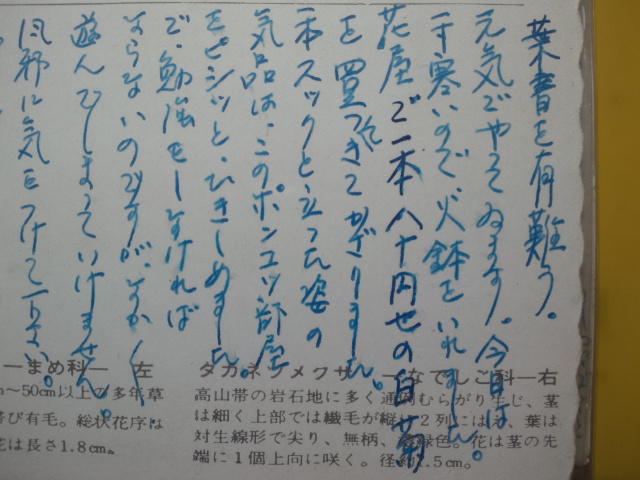 葉書を有難う。
元気でやってゐます。今日は
一寸寒いので火鉢をいれました。
花屋で一本八十円也の白菊
を買ってきてかざりました。
一本スックと立った姿の
気品は、このポンコツ部屋
をピシッと、ひきしめました。
で、勉強をしなければ
ならないのですが、とかく
遊んでしまっていけません。
風邪に気をつけて下さい。
タカネツメクサ —なでしこ科—右
高山帯の岩石地に多く通常むらがり生じ、茎
は細く上部では繊毛が縦に2列にはえ、葉は
対生線形で尖り、無柄、緑色。花は茎の先
端に1個上向に咲く。径約1.5cm。
—まめ科— 左
〜50cm以上の多年草
び有毛。総状花序は
花は長さ1.8cm。